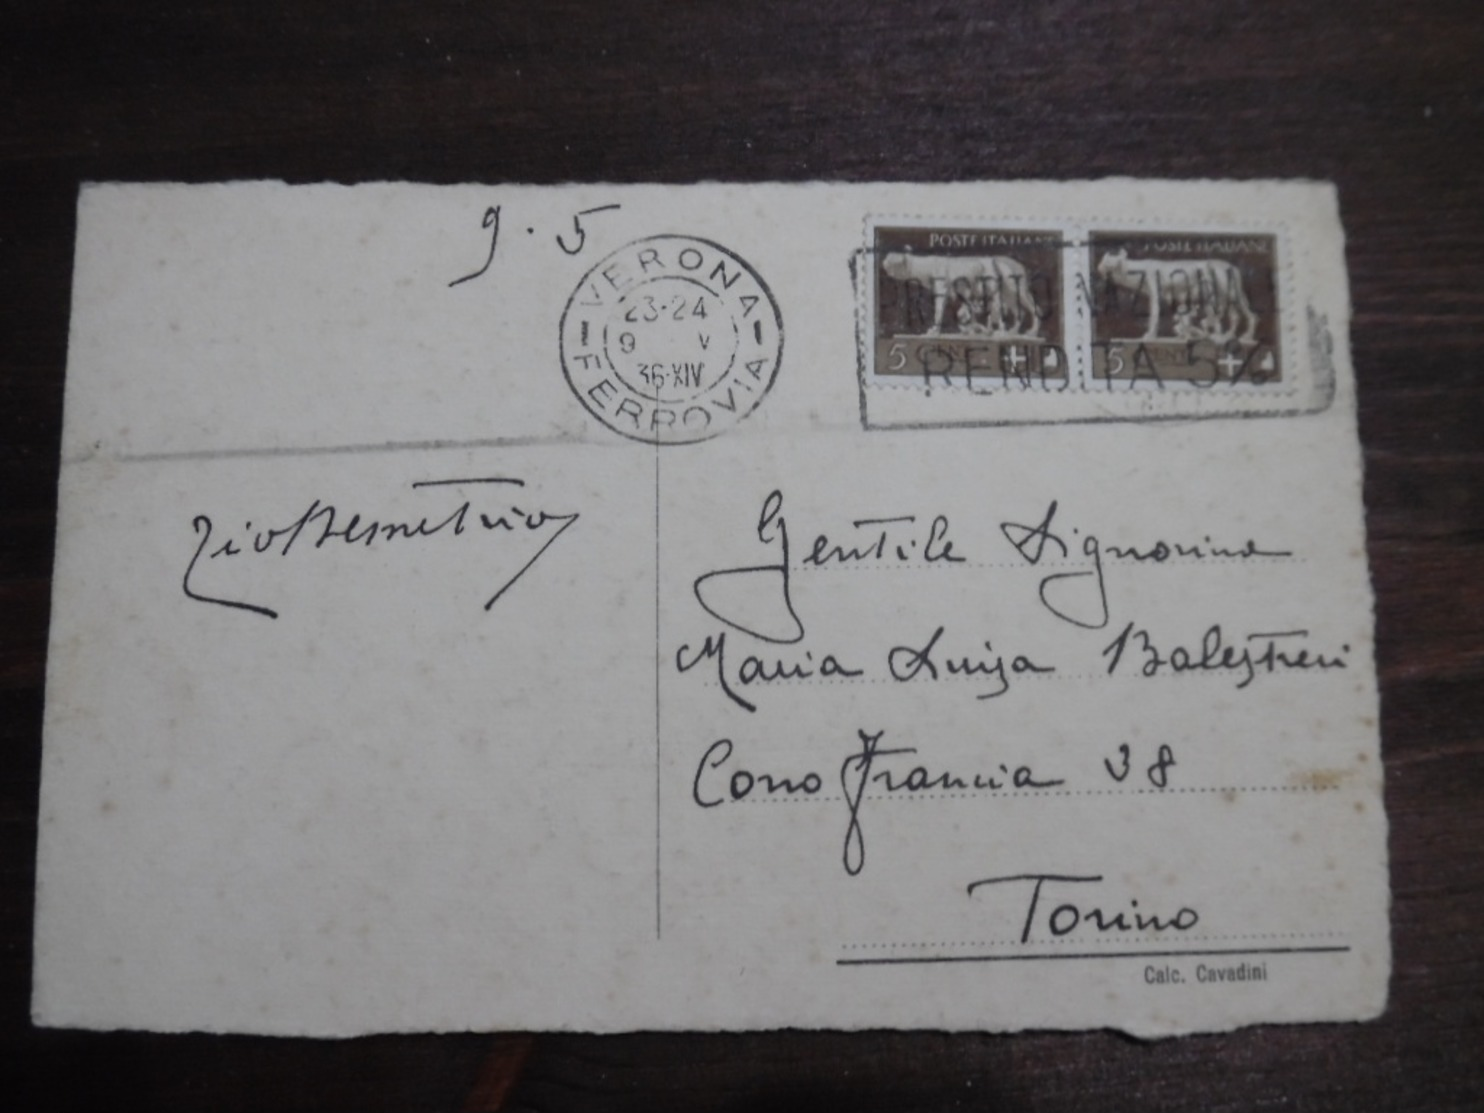 9. 5
VERONA
23-24
9 V
36-XIV
FERROVIA
POSTE ITALIANE
POSTE ITALIANE
PRESTITO NAZIONALE
RENDITA 5%
5 CENT
5 CENT
Zio Demetrio
Gentile Signorina
Maria Luisa Balestreri
Corso Francia 38
Torino
Calc. Cavadini